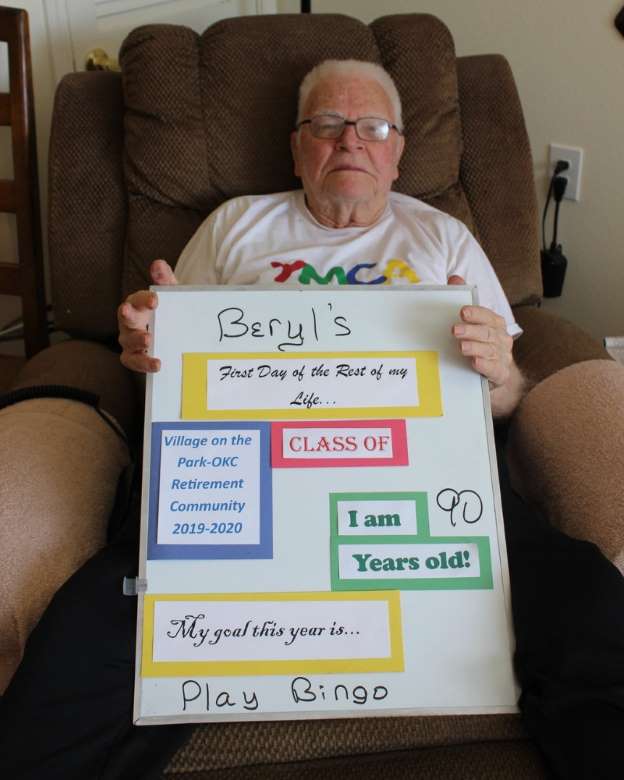 YMCA
Beryl's
First Day of the Rest of my
Life...
Village on the
Park-OKC
Retirement
Community
2019-2020
CLASS OF
I am 90
Years old!
My goal this year is...
Play Bingo